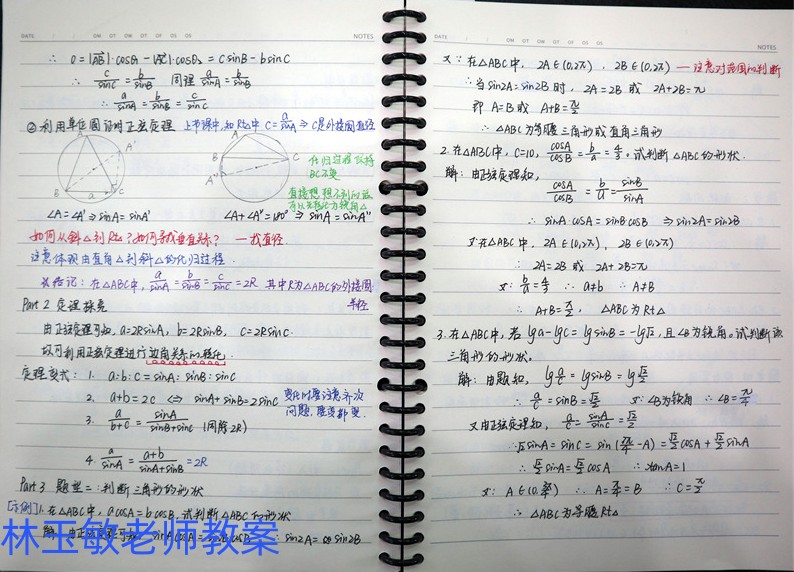 DATE / / OM OT OM OT OF OS OS NOTES
∴ 0=|AB|·cosθ₁-|AC|·cosθ₂ = c sinB - b sinC
∴ c/sinC = b/sinB 同理 a/sinA = b/sinB
∴ a/sinA = b/sinB = c/sinC
② 利用单位圆证明正弦定理 上节课中,如Rt△中 C=a/sinA ⇒ C是外接圆直径
A A' B a C
A B C A''
化归过程保持
BC不变
∠A=∠A' ⇒ sinA=sinA'
∠A+∠A''=180° ⇒ sinA=sinA''
如何从斜△到Rt△?如何寻找垂直关系? —找直径.
注意体现由直角△到斜△的化归过程.
在△ABC中, a/sinA = b/sinB = c/sinC = 2R 其中R为△ABC的外接圆
半径
Part 2 定理探究
由正弦定理可知, a=2RsinA, b=2RsinB, c=2RsinC.
故可利用正弦定理进行边角关系的转化.
定理变式: 1. a:b:c = sinA:sinB:sinC
2. a+b=2c ⇔ sinA+sinB=2sinC 变化时要注意齐次
问题,
3. a/(b+c) = sinA/(sinB+sinC) (同除2R)
4. a/sinA = (a+b)/(sinA+sinB) = 2R
Part 3 题型一:判断三角形的形状
[示例]1. 在△ABC中, acosA=bcosB, 试判断△ABC的形状
解: 由正弦定理可知, sinAcosA=sinBcosB ∴ sin2A=sin2B
林玉敏老师教案
DATE / / OM OT OM OT OF OS OS NOTES
又∵在△ABC中, 2A∈(0,2π), 2B∈(0,2π) —注意对范围的判断
∴当sin2A=sin2B时, 2A=2B 或 2A+2B=π
即 A=B 或 A+B=π/2
∴ △ABC为等腰三角形或直角三角形
2. 在△ABC中, C=10, cosA/cosB = b/a = 4/3. 试判断△ABC的形状.
解: 由正弦定理知,
cosA/cosB = b/a = sinB/sinA
∴ sinA·cosA=sinBcosB ⇒ sin2A=sin2B
又∵在△ABC中, 2A∈(0,2π), 2B∈(0,2π)
∴ 2A=2B 或 2A+2B=π
又∵ b/a = 4/3 ∴ a≠b ∴ A≠B
∴ A+B=π/2, △ABC为Rt△
3. 在△ABC中, 若 lga-lgc=lgsinB=-lg√2, 且∠B为锐角. 试判断该
三角形的形状.
解: 由题知, lg a/c = lgsinB = lg √2/2
∴ a/c = sinB = √2/2 又∵∠B为锐角 ∴ ∠B=π/4
又由正弦定理知, a/c = sinA/sinC = √2/2
∴ √2sinA = sinC = sin(3π/4-A) = √2/2cosA+√2/2sinA
∴ √2/2sinA=√2/2cosA ∴ tanA=1
又∵ A∈(0,3π/4) ∴ A=π/4=B ∴ C=π/2
∴ △ABC为等腰Rt△